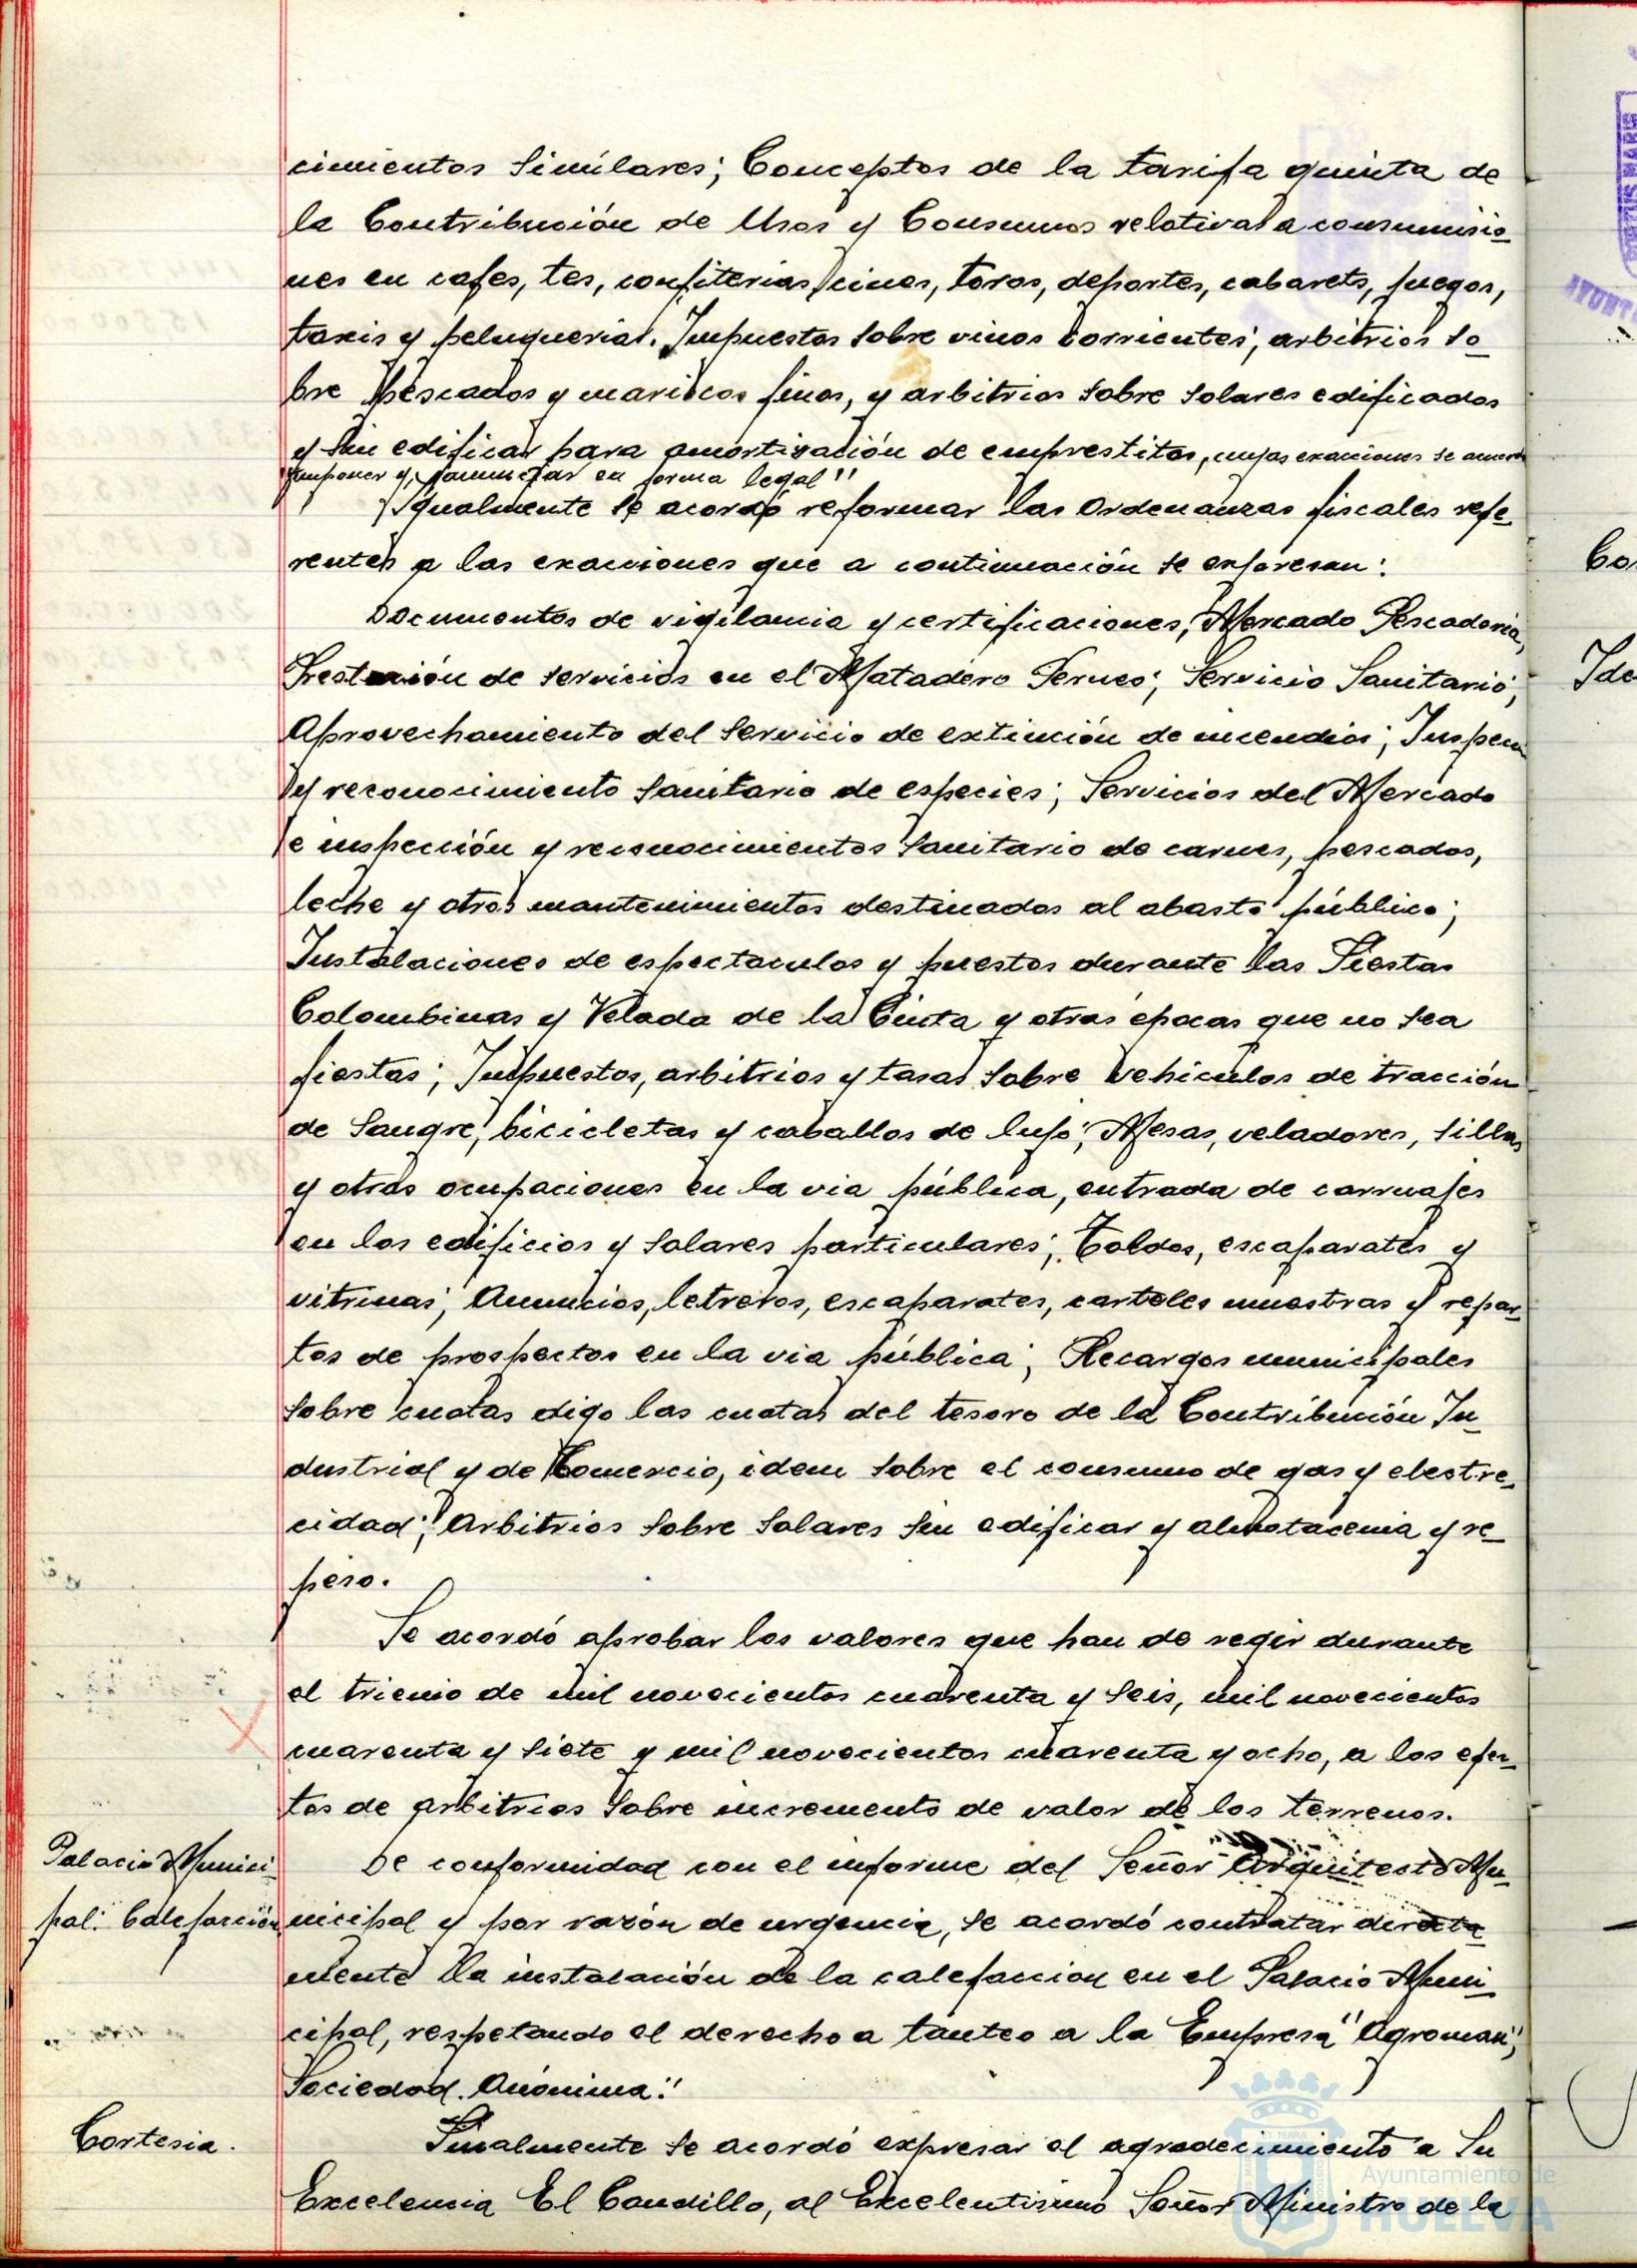 cimientos similares; Conceptos de la tarifa quinta de
la Contribución de Usos y Consumos relativas a consumisio-
nes en cafes, tes, confiterias, cines, toros, deportes, cabarets, juegos,
taxis y peluquerias. Impuestos sobre vinos corrientes; arbitrios so-
bre pescados y mariscos finos, y arbitrios sobre solares edificados
y sin edificar para amortización de emprestitos, cuyas exacciones se
imponer y en forma legal"
Igualmente se acordó reformar las Ordenanzas fiscales refe-
rentes a las exacciones que a continuación se expresan:
Documentos de vigilancia y certificaciones, Mercado Pescaderia,
Prestación de servicios en el Matadero Serneo; Servicio Sanitario;
Aprovechamiento del Servicio de extinción de incendios; Inspecn
y reconocimiento sanitario de especies; Servicios del Mercado
e inspección y reconocimientos sanitario de carnes, pescados,
leche y otros mantenimientos destinados al abasto público;
Instalaciones de espectaculos y puestos durante las Fiestas
Colombinas y Velada de la Cinta y otras épocas que no sea
fiestas; Impuestos, arbitrios y tasas sobre vehículos de tracción
de sangre, bicicletas y caballos de lujo; Mesas, veladores, sillas
y otras ocupaciones en la via pública, entrada de carruajes
en los edificios y solares particulares; Toldos, escaparates y
vitrinas; Anuncios, letreros, escaparates, carteles muestras y repar-
tos de prospectos en la via pública; Recargos municipales
sobre cuotas digo las cuotas del tesoro de la Contribución In-
dustrial y de Comercio, idem sobre el consumo de gas y electre-
cidad; Arbitrios sobre solares sin edificar y almotacenia y re-
peso.
Se acordó aprobar los valores que han de regir durante
el trienio de mil novecientos cuarenta y seis, mil novecientos
cuarenta y siete y mil novecientos cuarenta y ocho, a los efec-
tos de arbitrios sobre incremento de valor de los terrenos.
Palacio Munici-
pal: Calefacción
De conformidad con el informe del Señor Arquitecto Mu-
nicipal y por razón de urgencia, se acordó contratar directa-
mente la instalación de la calefaccion en el Palacio Muni-
cipal, respetando el derecho a tanteo a la Empresa "Agroman",
Sociedad Anónima."
Cortesia.
Finalmente se acordó expresar el agradecimiento a Su
Excelencia El Caudillo, al Excelentisimo Señor Ministro de la
Ayuntamiento de
HUELVA
Co
Ide